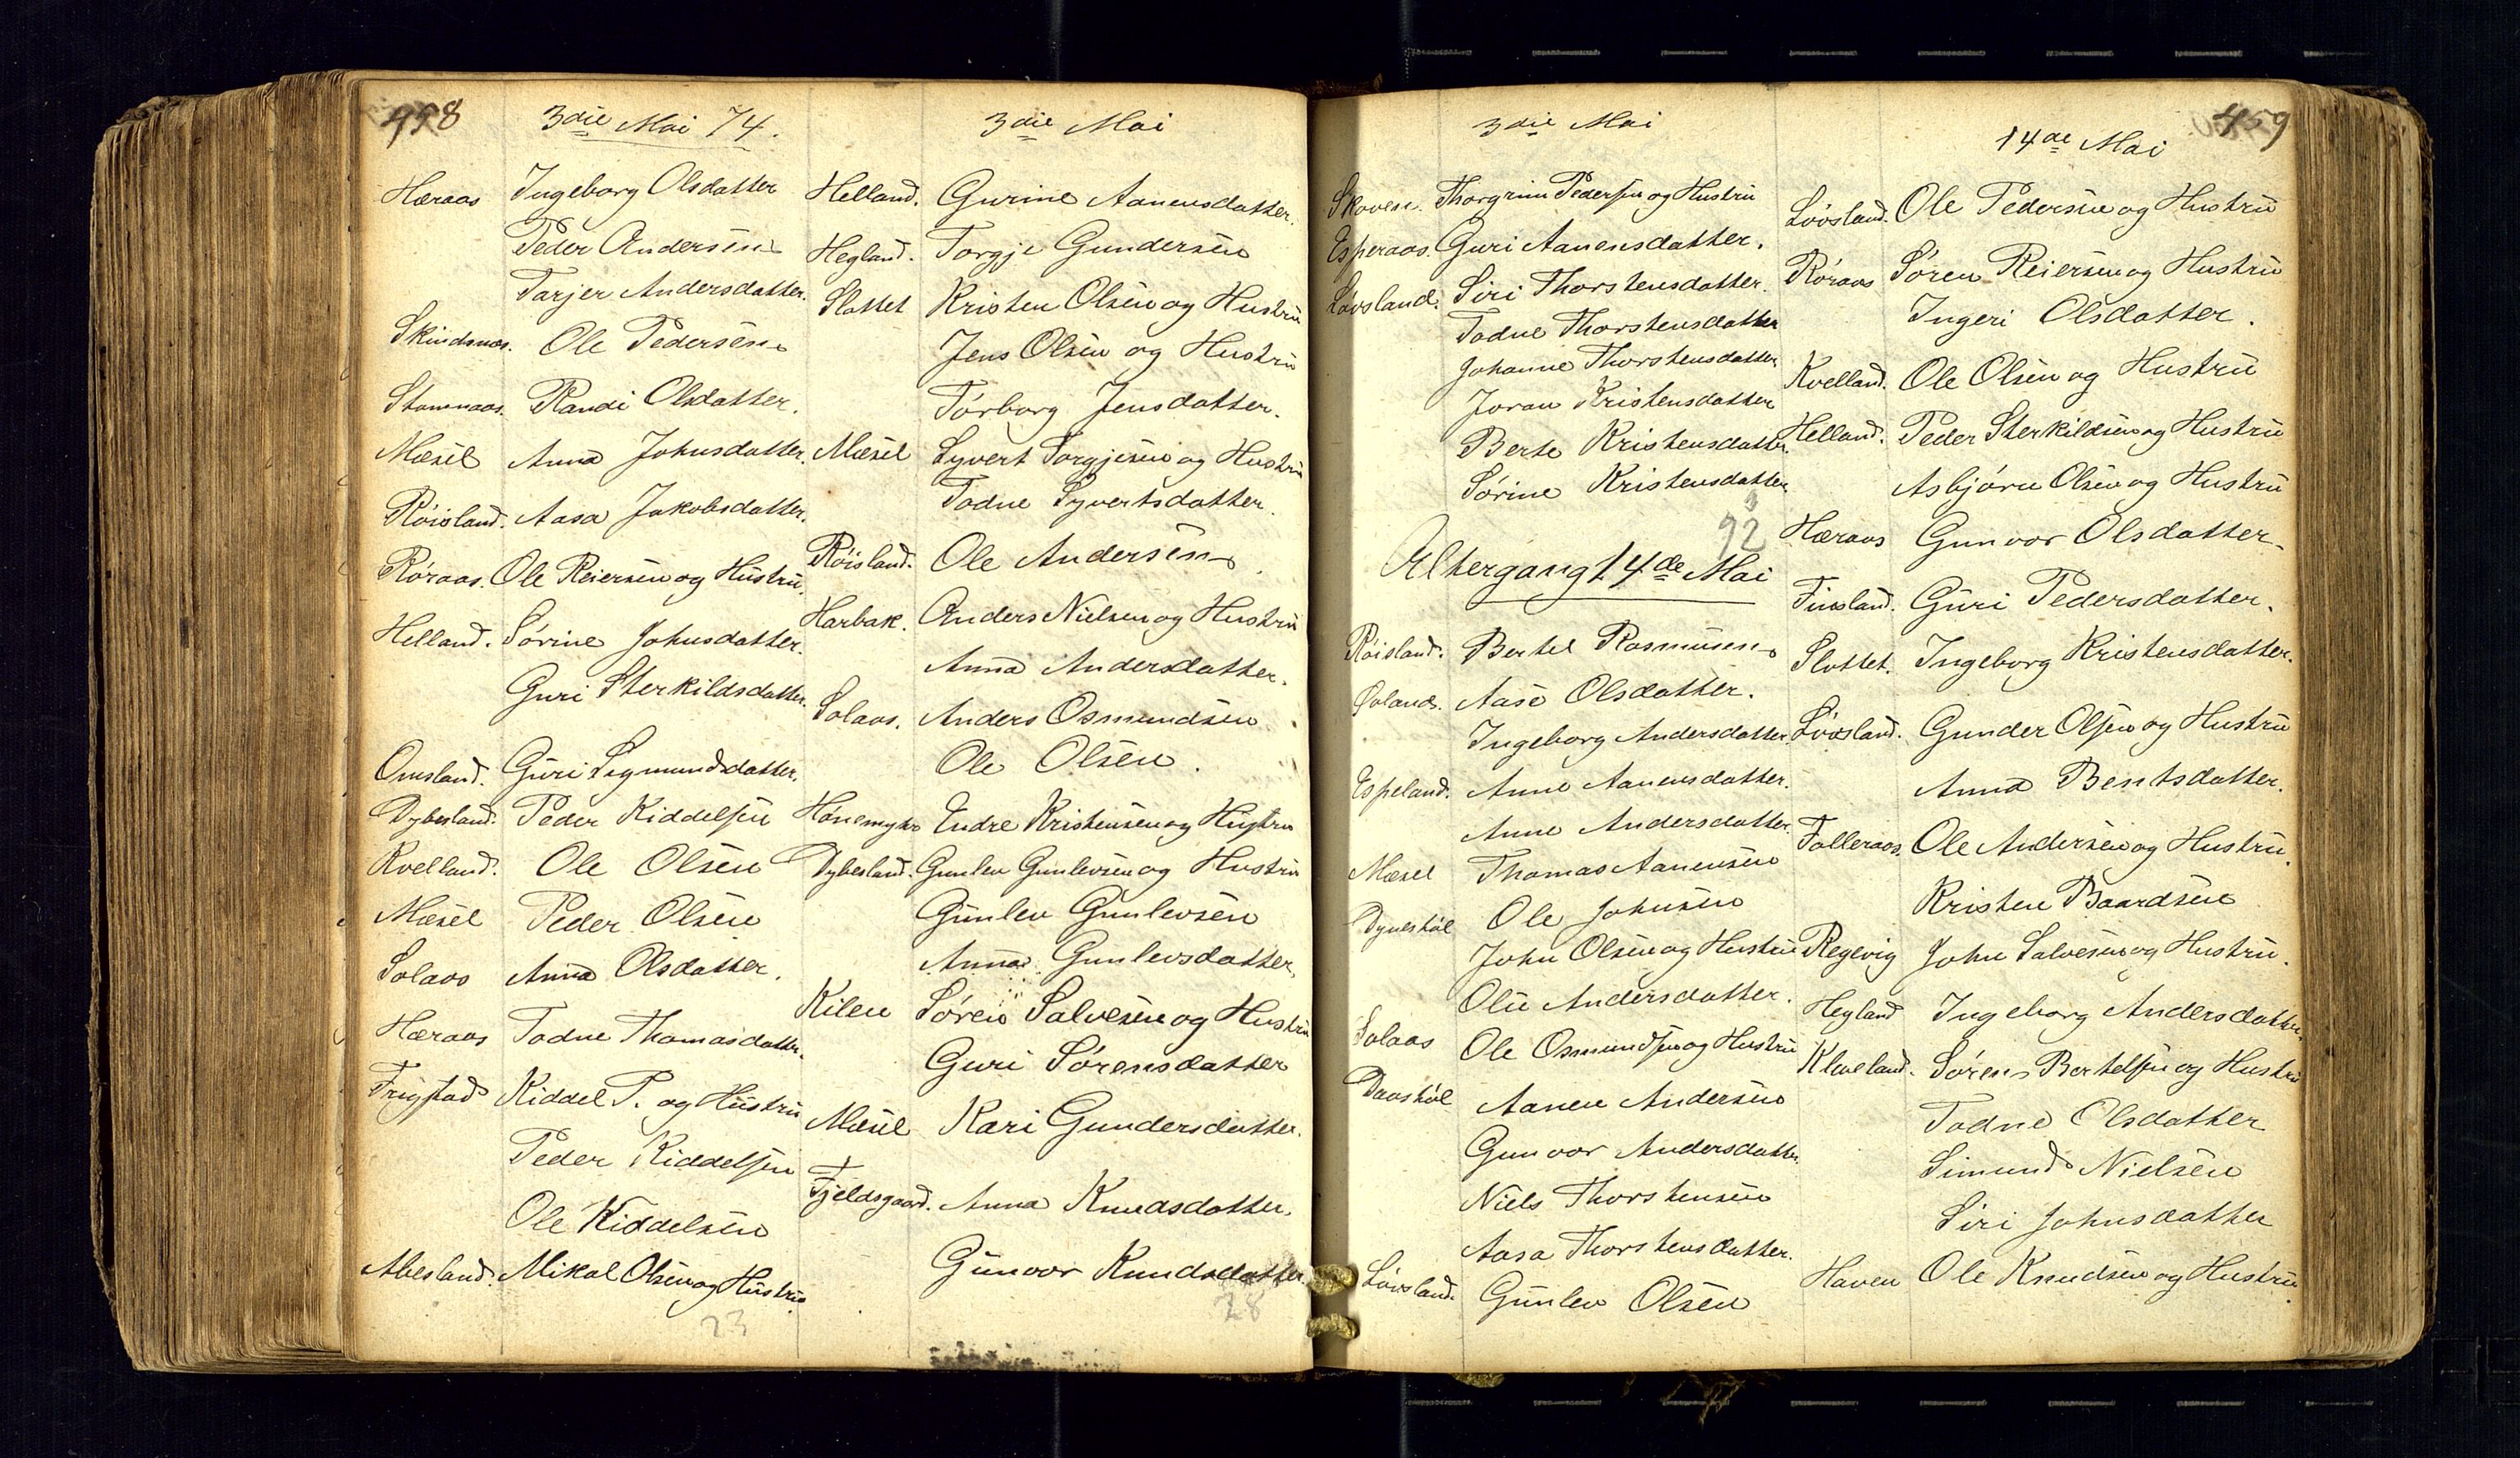 458
3die Mai 74.
Hæraas Ingeborg Olsdatter
Peder Andersen
Tarjer Andersdatter.
Skindsnæs. Ole Pedersen
Stømnaas. Randi Olsdatter.
Mæsel Anna Johnsdatter.
Röisland. Aasa Jakobsdatter.
Röraas. Ole Reiersen og Hustru.
Helland. Sörine Johnsdatter.
Guri Sterkildsdatter.
Omsland. Guri Sigmundsdatter.
Dybesland. Peder Kiddelsen
Kvelland. Ole Olsen
Mæsel Peder Olsen
Solaas Anna Olsdatter.
Hæraas Todne Thomasdatter.
Frigstad Kiddel P. og Hustru
Peder Kiddelsen
Ole Kiddelsen
Abesland. Mikal Olsen og Hustru
23
3die Mai
Helland. Gurine Aanensdatter.
Hegland. Torgje Gundersen
Slottet Kristen Olsen og Hustru
Jens Olsen og Hustru
Törborg Jensdatter.
Mæsel Syvert Torgjesen og Hustru
Todne Syvertsdatter.
Röisland. Ole Andersen
Harbak. Anders Nielsen og Hustru
Anna Andersdatter.
Solaas. Anders Osmundsen
Ole Olsen.
Hönemyhr Endre Kristensen og Hustru
Dybesland. Gunlev Gunlevsen og Hustru
Gunlev Gunlevsen
Anna Gunlevsdatter.
Kilen Søren Salvesen og Hustru
Guri Sørensdatter
Mæsel Kari Gundersdatter.
Fjeldsgaard. Anna Knudsdatter.
Gunvor Knudsdatter.
28
3die Mai
Skoven. Thorgrim Pedersen og Hustru
Esperaas. Guri Aanensdatter.
Lövsland. Siri Thorstensdatter.
Todne Thorstensdatter
Johanne Thorstensdatter
Joran Kristensdatter
Berte Kristensdatter
Sörine Kristensdatter
92
Altergang 14de Mai
Röisland. Bertel Rasmusen
Övland. Aase Olsdatter.
Ingeborg Andersdatter.
Espeland. Anne Aanensdatter.
Anne Andersdatter.
Mæsel Thomas Aanensen
Dyneshöl Ole Johnsen
John Olsen og Hustru
Olu Andersdatter.
Solaas Ole Osmundsen og Hustru
Daashöl Aanen Andersen
Gunvor Andersdatter.
Niels Thorstensen
Aasa Thorstensdatter.
Lövsland. Gunlev Olsen
459
14de Mai
Lövsland. Ole Pedersen og Hustru
Röraas Sören Reiersen og Hustru
Ingeri Olsdatter.
Kvelland. Ole Olsen og Hustru
Helland. Peder Sterkildsen og Hustru
Asbjörn Olsen og Hustru
Hæraas Gunvor Olsdatter
Finsland. Guri Pedersdatter.
Slottet. Ingeborg Kristensdatter.
Lövsland. Gunder Olsen og Hustru
Anna Bentsdatter.
Folleraas. Ole Andersen og Hustru.
Kristen Baardsen
Regevig John Salvesen og Hustru.
Hegland Ingeborg Andersdatter
Kleveland. Sören Bertelsen og Hustru
Todne Olsdatter
Simund Nielsen
Siri Johnsdatter
Haven Ole Knudsen og Hustru